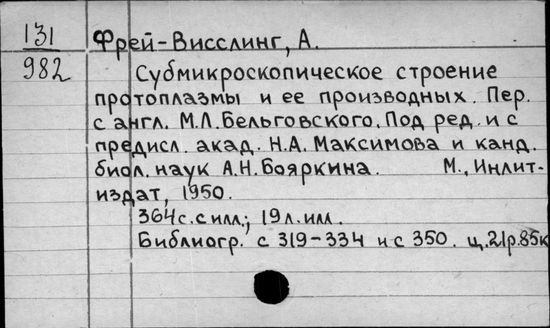 131
982
Фрей-Висслинг, А.
Субмикроскопическое строение
протоплазмы и ее производных. Пер.
с англ. М.Л. Бельговского. Под ред. и с
предисл. акад. Н.А. Максимова и канд.
биол. наук А.Н. Бояркина. М., Инлит-
издат, 1950.
364 с. с илл.; 19 л. илл.
Библиогр. с 319-334 и с 350. ц. 21р. 85к